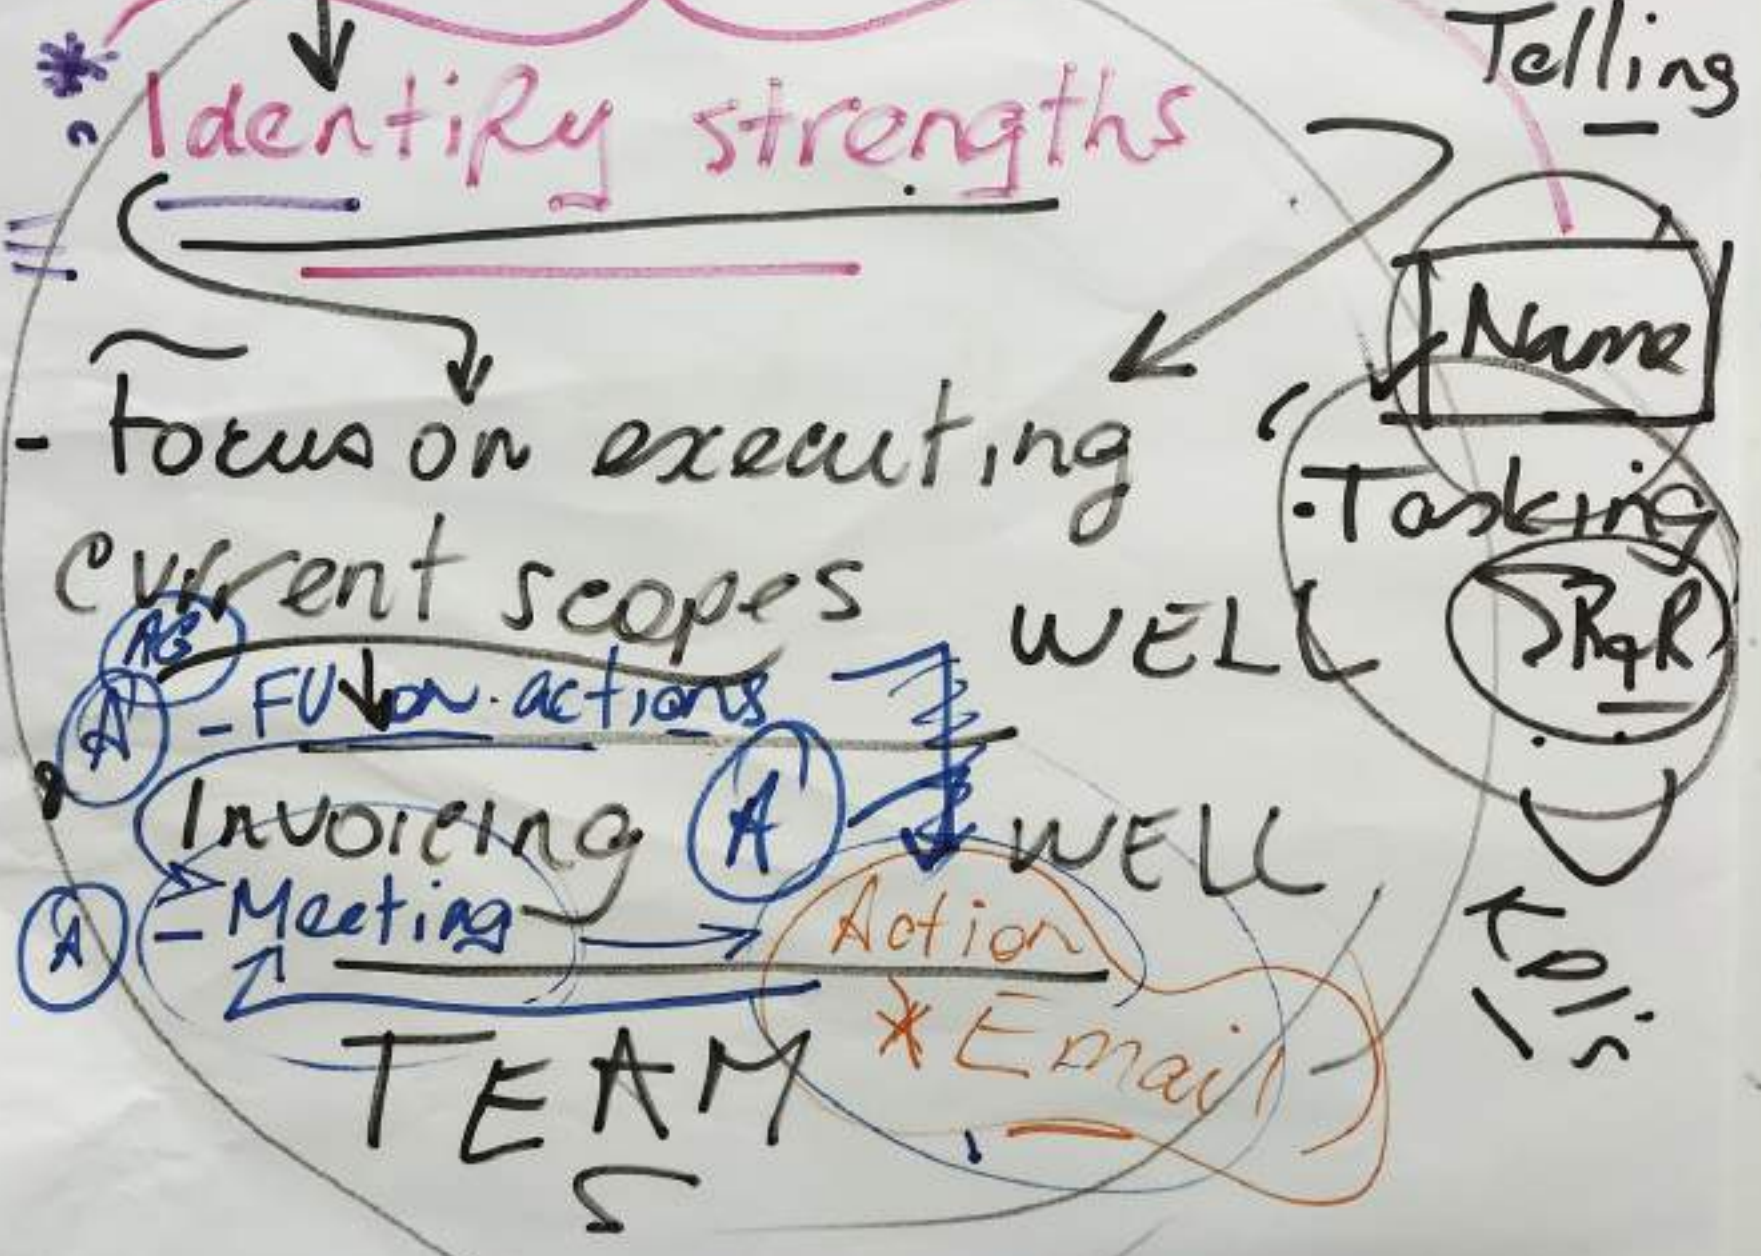 Telling
Identify strengths
Name
- Focus on executing
• Tasking
current scopes
WELL
RqR
AG
A - FU on actions
Invoicing A WELL
A - Meeting → Action
KPI's
* Email
TEAM